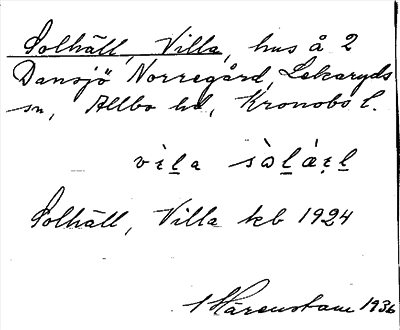 Solhäll, Villa, hus å 2
Dansjö Norregård, Lekaryds
sn, Allbo hd, Kronobs l.
vìla sòláɛl
Solhäll, Villa kb 1924
Härenstam 1936